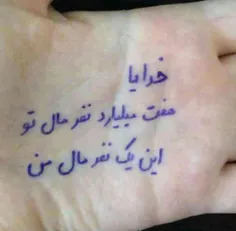 خدایا
هفت میلیارد نفر مال تو
این یک نفر مال من